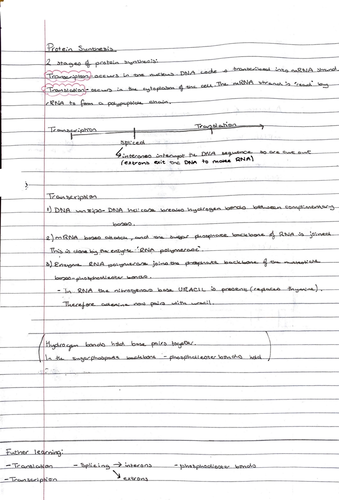 Protein Synthesis
2 stages of protein synthesis:
Transcription: occurs in the nucleus DNA code is transcribed into mRNA strand.
Translation - occurs in the cytoplasm of the cell. The mRNA strands is "read" by
rRNA to form a polypeptide chain.
Transcription Translation
Spliced
introns interrupt the DNA sequence so are cut out
(extrons exit the DNA to make RNA)
Transcription
1) DNA unzips - DNA helicase breaks hydrogen bonds between complimentary
bases.
2) mRNA bases attach, and the sugar phosphate backbone of RNA is 'joined'
This is done by the enzyme "RNA polymerase"
3) Enzyme RNA polymerase joins the phosphate backbone of the nucleotide
bases - phosphodiester bonds.
- In RNA the nitrogenous base URACIL is present (replaces thymine).
Therefore adenine now pairs with uracil.
Hydrogen bonds hold base pairs together.
In the sugar phosphate backbone - phosphodiester bonds hold
Futher learning:
- Translation - Splicing → introns - phosphodiester bonds
- Transcription → extrons